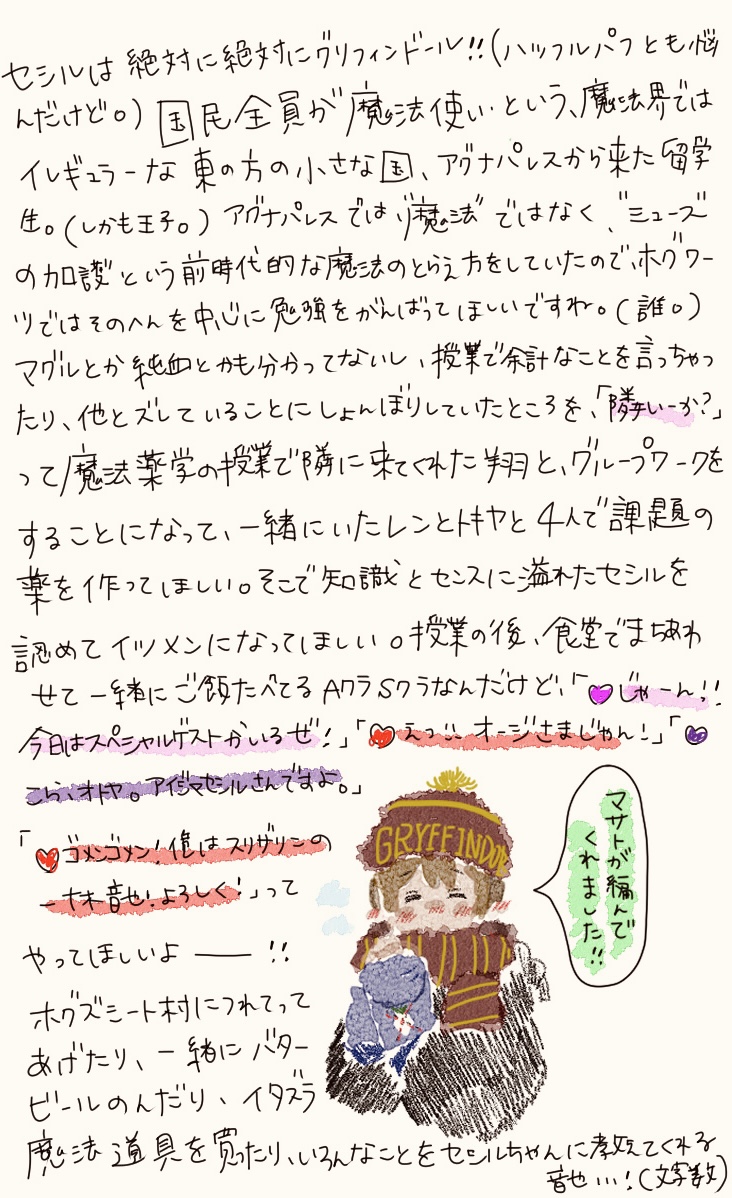 セシルは絶対に絶対にグリフィンドール!!(ハッフルパフとも悩
んだけど。)国民全員が魔法使いという、魔法界では
イレギュラーな東の方の小さな国、アグナパレスから来た留学
生。(しかも王子。)アグナパレスでは"魔法"ではなく、"ミューズ"
の加護"という前時代的な魔法のとらえ方をしていたので、ホグワー
ツではそのへんを中心に勉強をがんばってほしいですね。(誰。)
マグルとか純血とかも分かってないし、授業で余計なことを言っちゃっ
たり、他とズレていることにしょんぼりしていたところを、「隣いーか?」
って魔法薬学の授業で隣に来てくれた翔と、グループワークを
することになって、一緒にいたレンとトキヤと4人で課題の
薬を作ってほしい。そこで知識とセンスに溢れたセシルを
認めてイツメンになってほしい。授業の後、食堂でまちあわ
せて一緒にご飯たべてるAクラSクラなんだけど、「♥じゃーん!!
今日はスペシャルゲストがいるぜ!」「♥えっ!!オージさまじゃん!」「♥
こら、オトヤ。アイジマセシルさんですよ。」
「♥ゴメンゴメン!俺はスリザリンの
一十木音也!よろしく!」って
やってほしいよ――!!
ホグズミート村につれてって
あげたり、一緒にバター
ビールのんだり、イタズラ
魔法道具を買ったり、いろんなことをセシルちゃんに教えてくれる
音也…!(文字数)
GRYFFINDOR
マサトが編んで
くれました!!